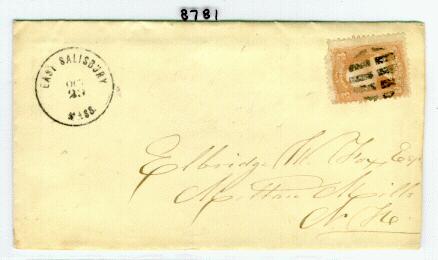 8781
EAST SALISBURY
OCT
29
MASS.
Elbridge W. Fox, Esq
Milton Mills
N. H.